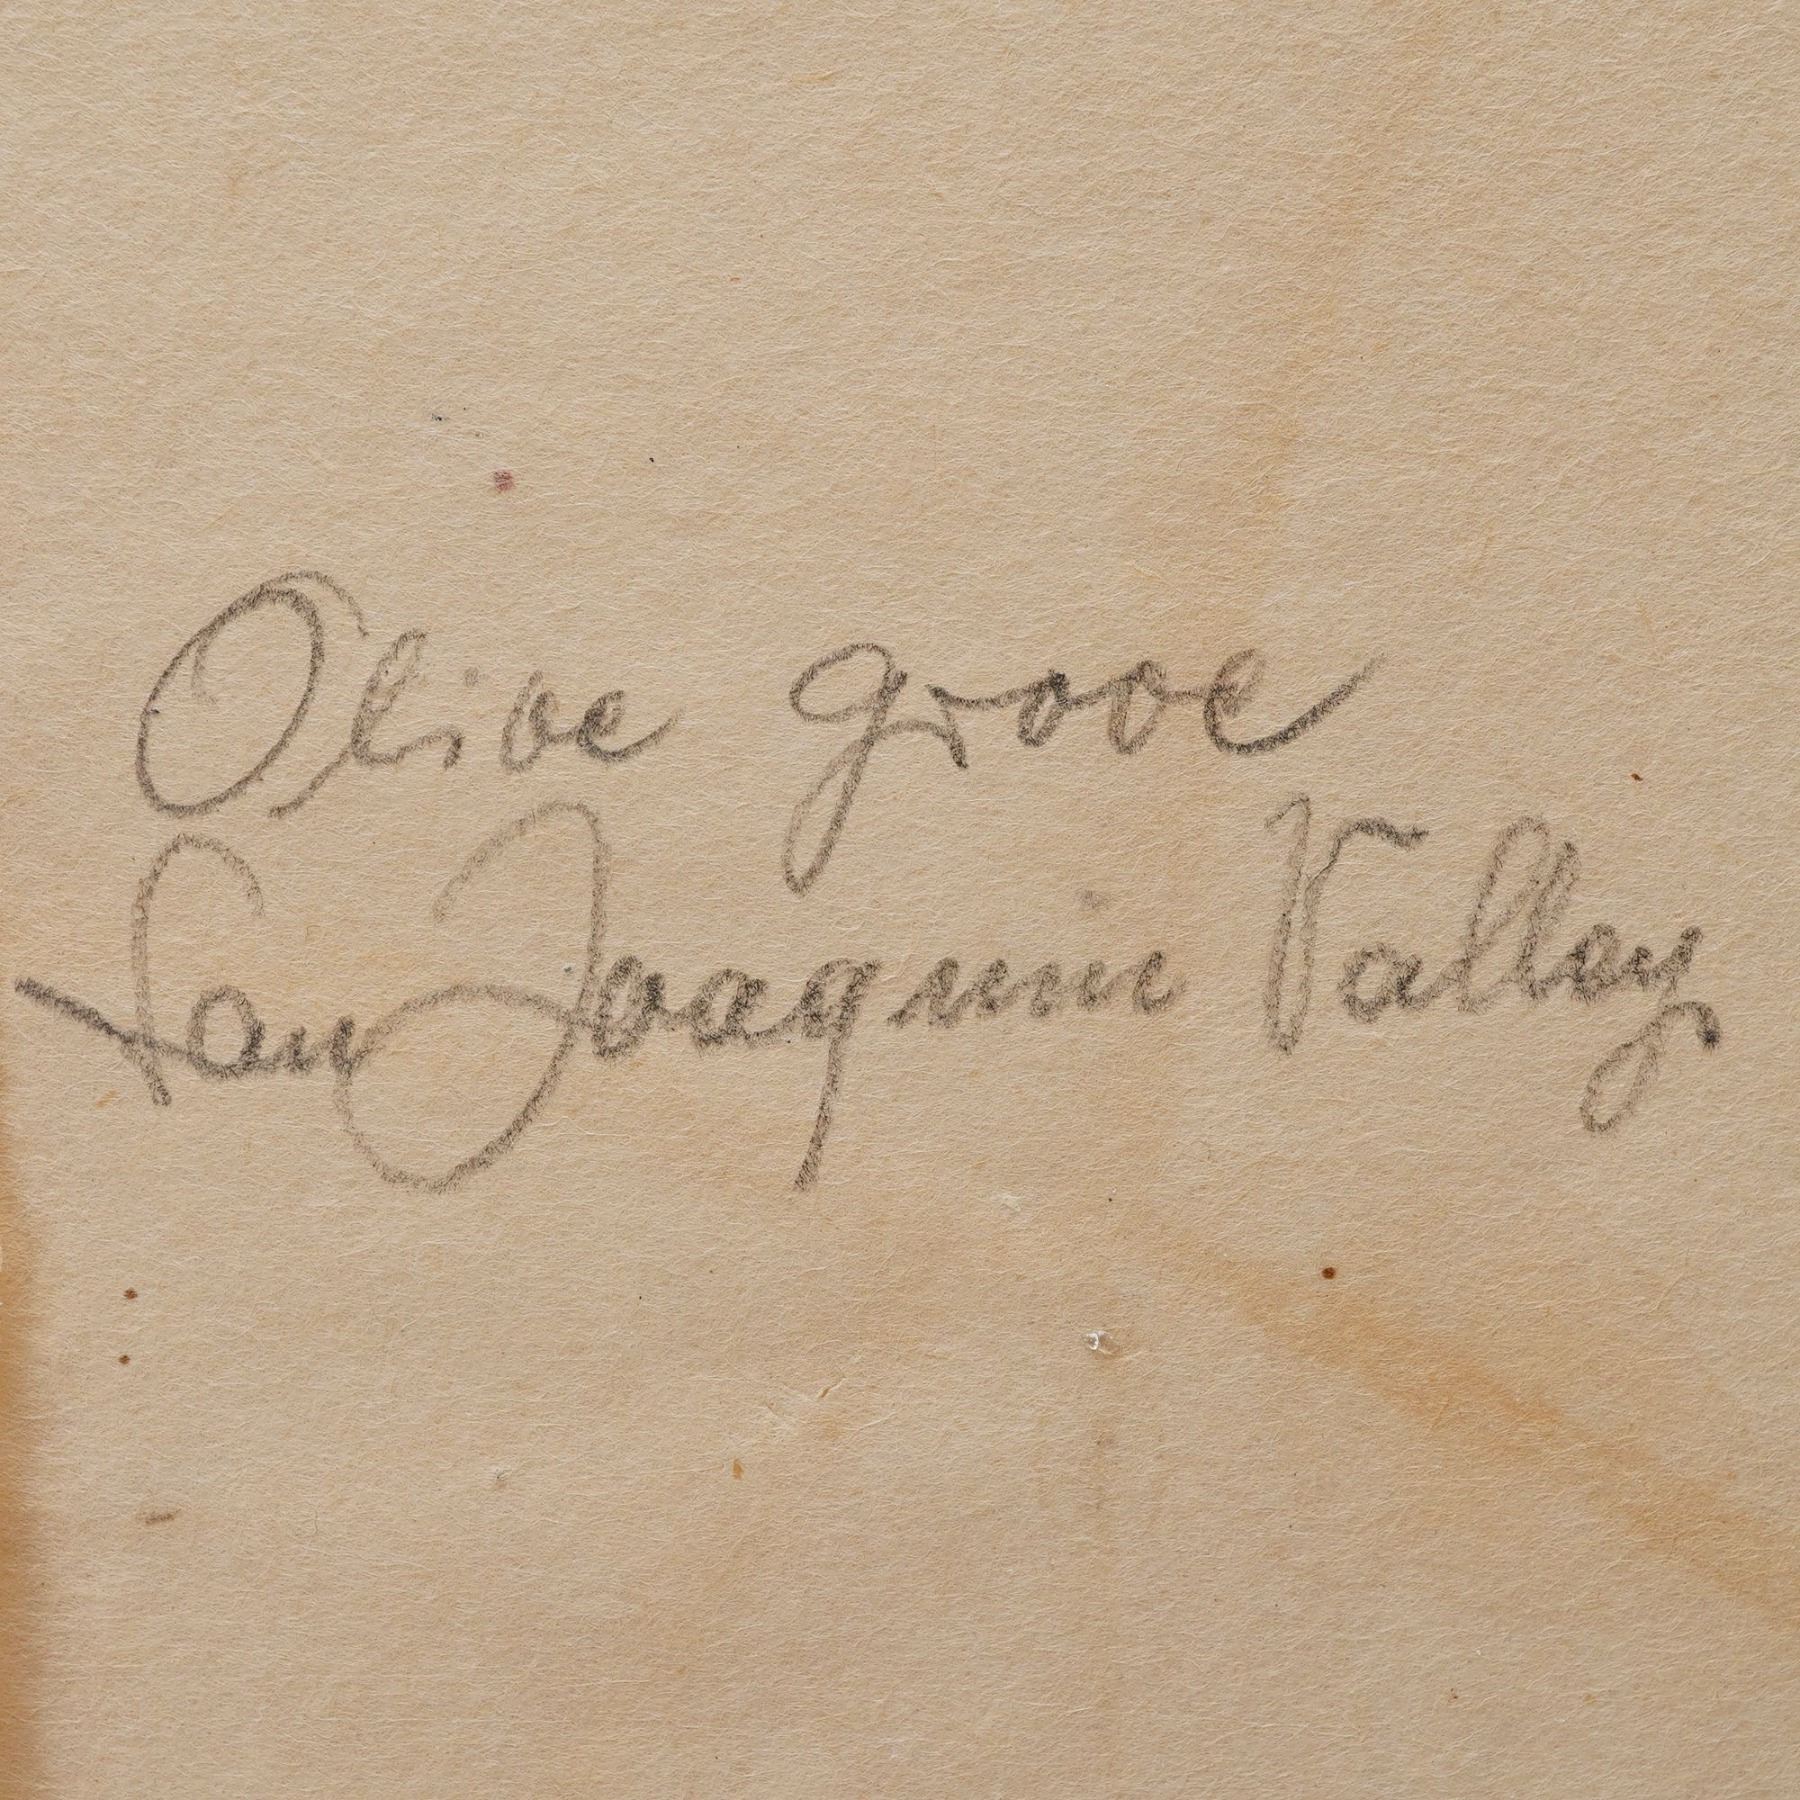 Olive grove
San Joaquin Valley